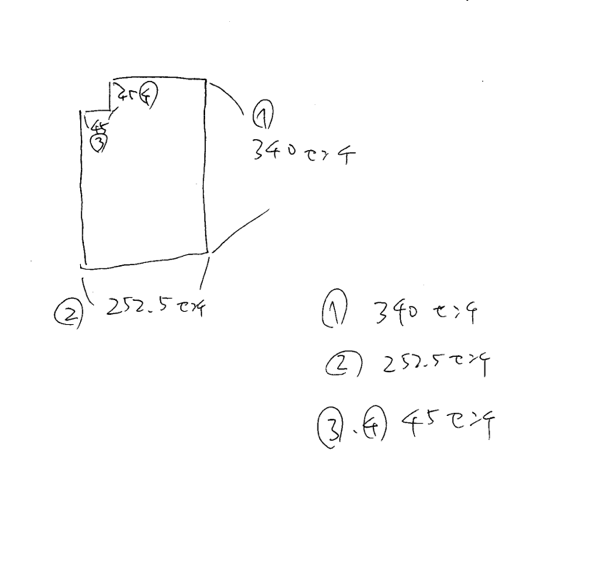 45④
45
③
①
340センチ
② 252.5センチ
① 340センチ
② 252.5センチ
③.④ 45センチ